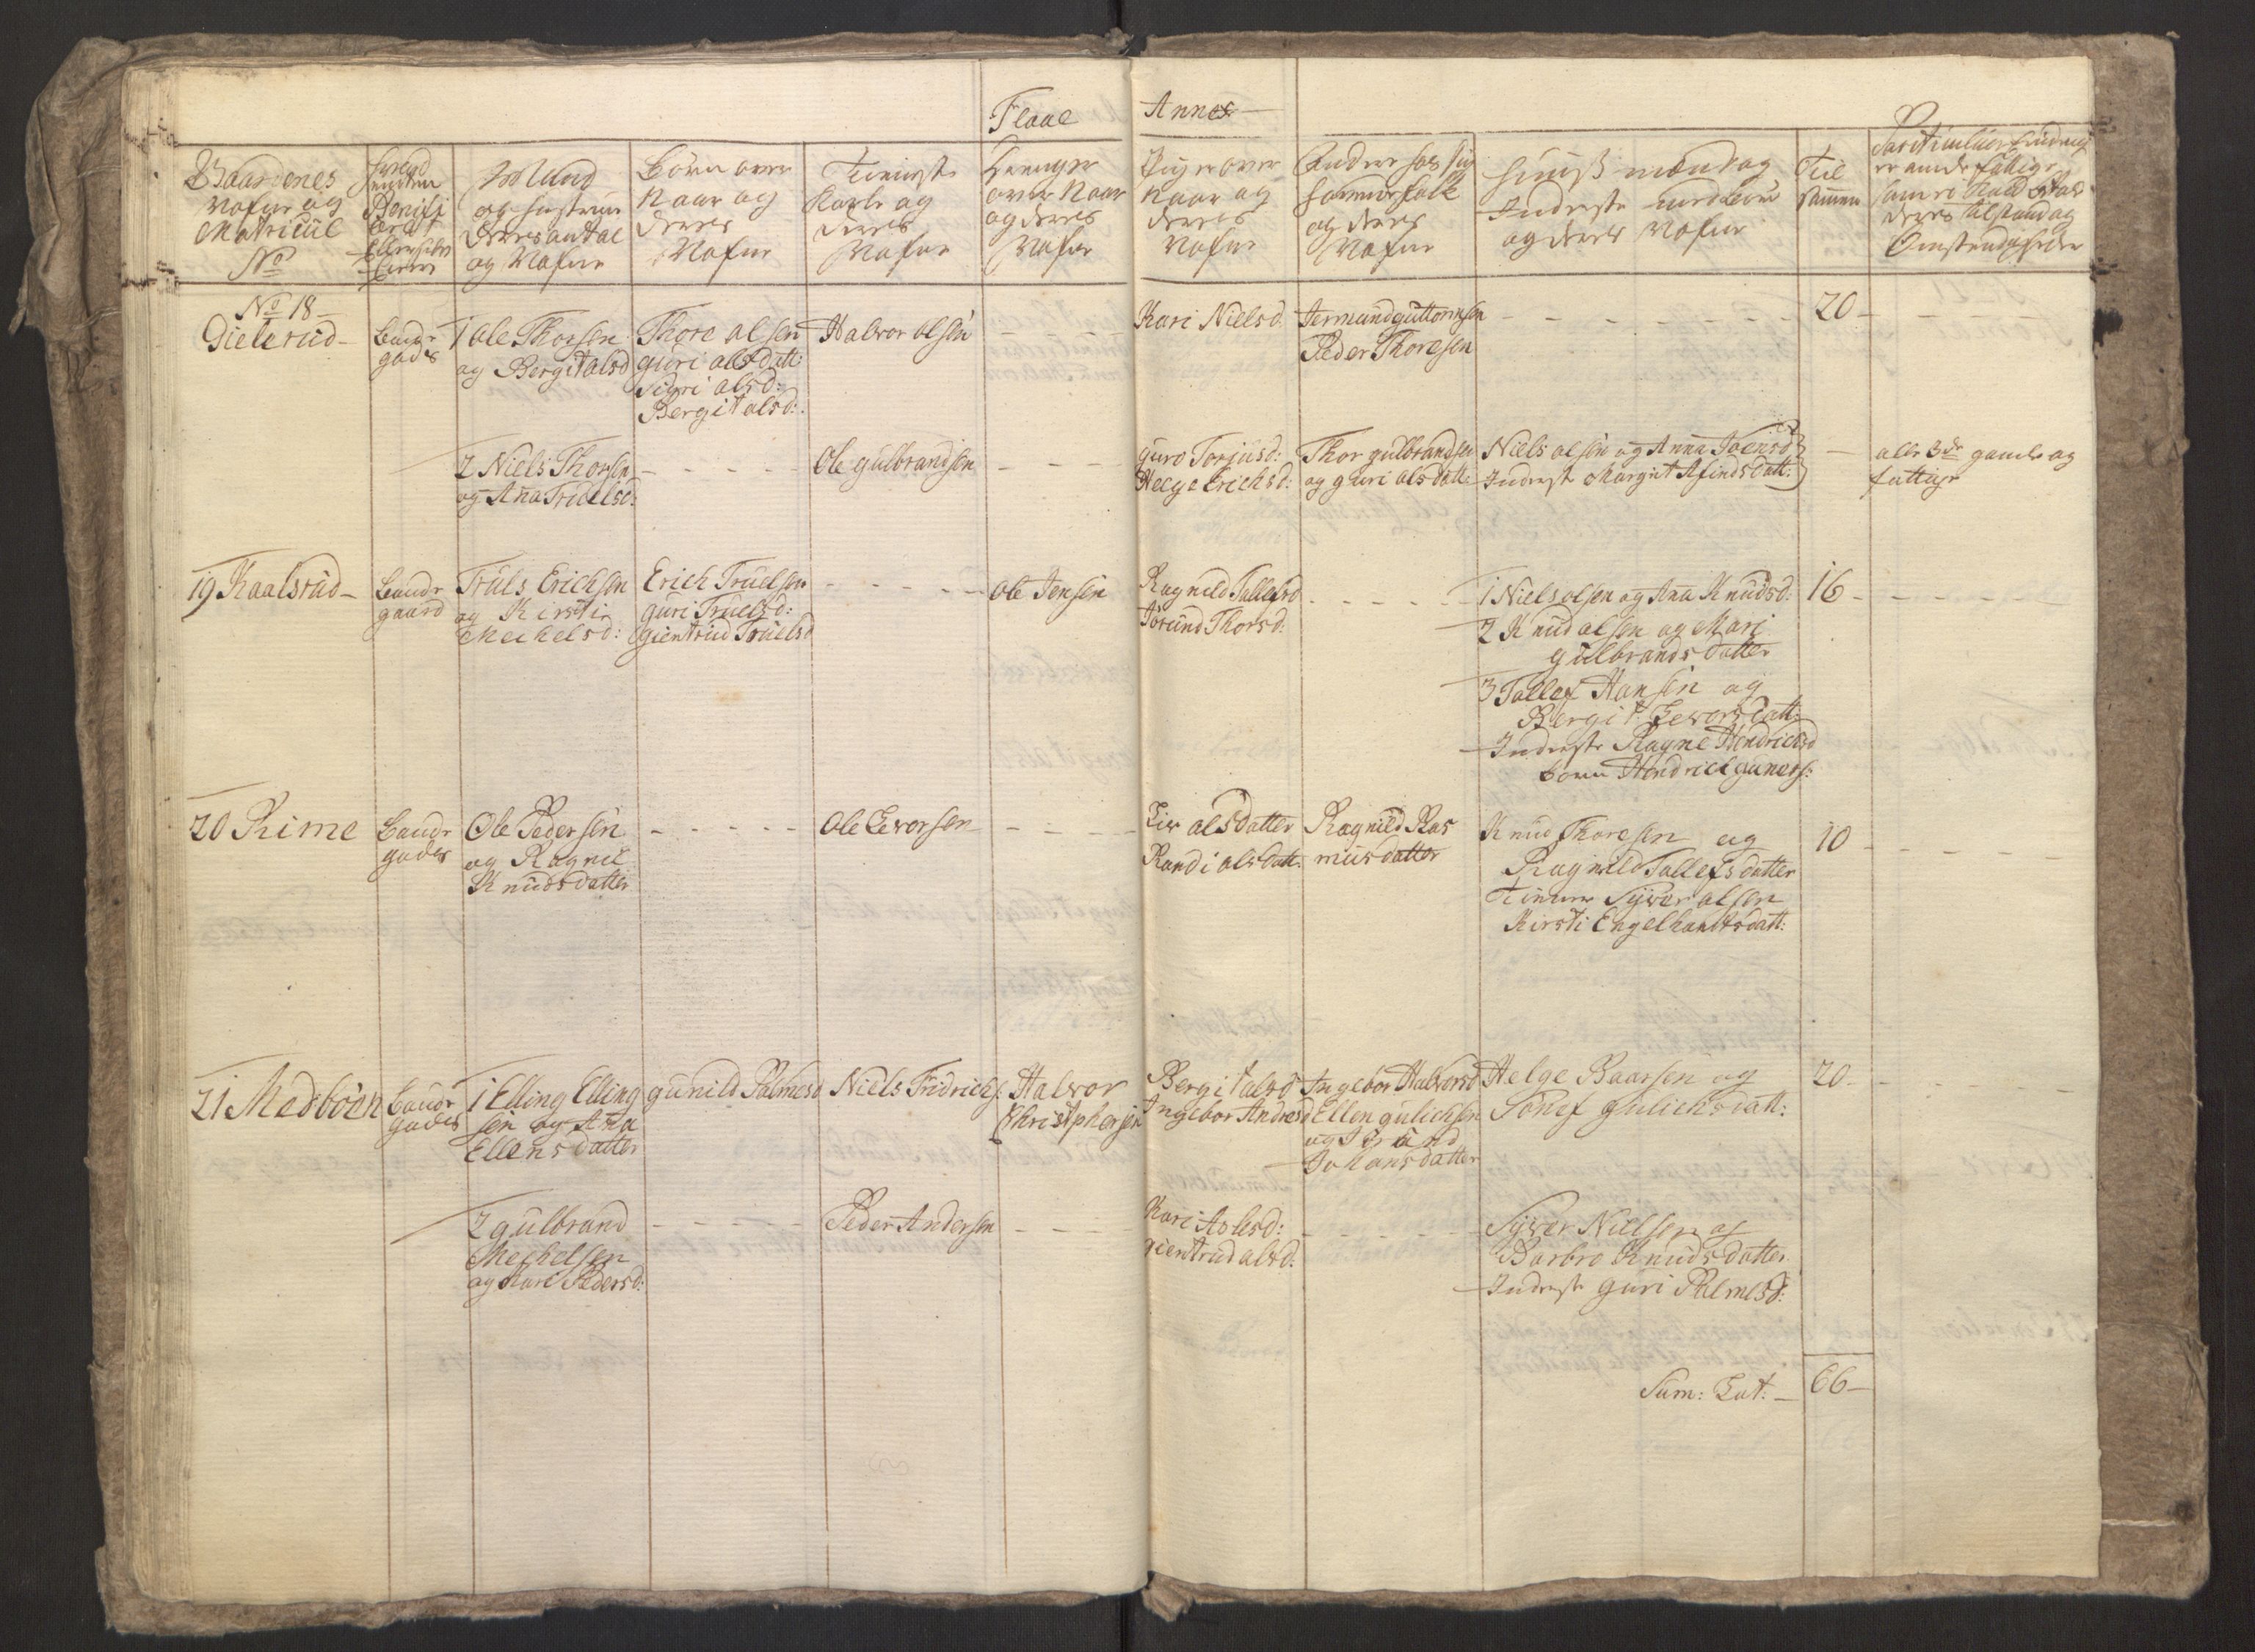 Flaae Annex
Gaardenes
Nafne og
Matricul
No
Mand
og Hustrue
deres antal
og Nafne
Børn over
Naar og
deres
Nafne
Tieniste
Karle og
deres
Nafne
Drenge
over Naar
og deres
Nafne
Piger over
Naar og
deres
Nafne
Andre hos sig
og deres
Nafne
Huusmænd og
Inderste med børn
og deres Nafne
Til
sammen
Omstendigheder
No 18
Gielerud
Bonde
gods
1 Ole Thorsen
og Bergit olsd
Thore olsen
guri olsdatt:
Sigri olsd:
Bergit olsd:
Halvor olsen
Kari Nielsd
Jermund guttormsen
Peder Thoresen
20
2 Niels Thorsen
og Ana Truelsd:
Ole gulbrandsen
guro Torjusd:
Helge Erichsd:
Thor gulbrandsen
og guri olsdatt:
Niels olsen og Anna Joensd
Inderste Margit Afindsdatt:
alle 3de gamle og
fattige
19 Kaalsrud
Bonde
gaard
Truls Erichsen
og Kirsti
Mechelsd:
Erich Truelsen
guri Truelsd:
gientrud Truelsd
Ole Jensen
Ragnild Tollefsd
Jörund Thorsd:
1 Niels olsen og Ana Knudsd:
16
2 Knud olsen og Mari
gulbrandsdatter
3 Tollef Hansen og
Bergit Evorsdatt:
Inderste Ragne Hendrichsd
børn Hendrich gunersen:
20 Rime
Bonde
gods
Ole Pedersen
og Ragnil
Knudsdatter
Ole Evorsen
Liv olsdatter
Randi olsdatt:
Ragnild Ras
musdatter
Knud Thoresen og
Ragnild Tollefsdatter
Tienere Syver olsen
Kirsti Engelhantsdatt:
10
21 Medböen
Bonde
gods
1 Elling Elling
sen og Ana
Ellensdatter
gunild Palmesd
Niels Fridrichs:
Halvor
Christphersen
Bergit olsd
Ingebor Andersd
Ingebor Halvorsd
Ellen gulichsen
og Jörånd
Johansdatter
Helge Baarsen og
Sönef gulichsdatt:
20
2 gulbrand
Mechelsen
og Kari Pedersd:
Peder Andersen
Kari Aslesd:
gientrud olsd:
Syver Nielsen og
Barbro Knudsdatter
Inderste guri Palmesd:
Sum: Lat: 66